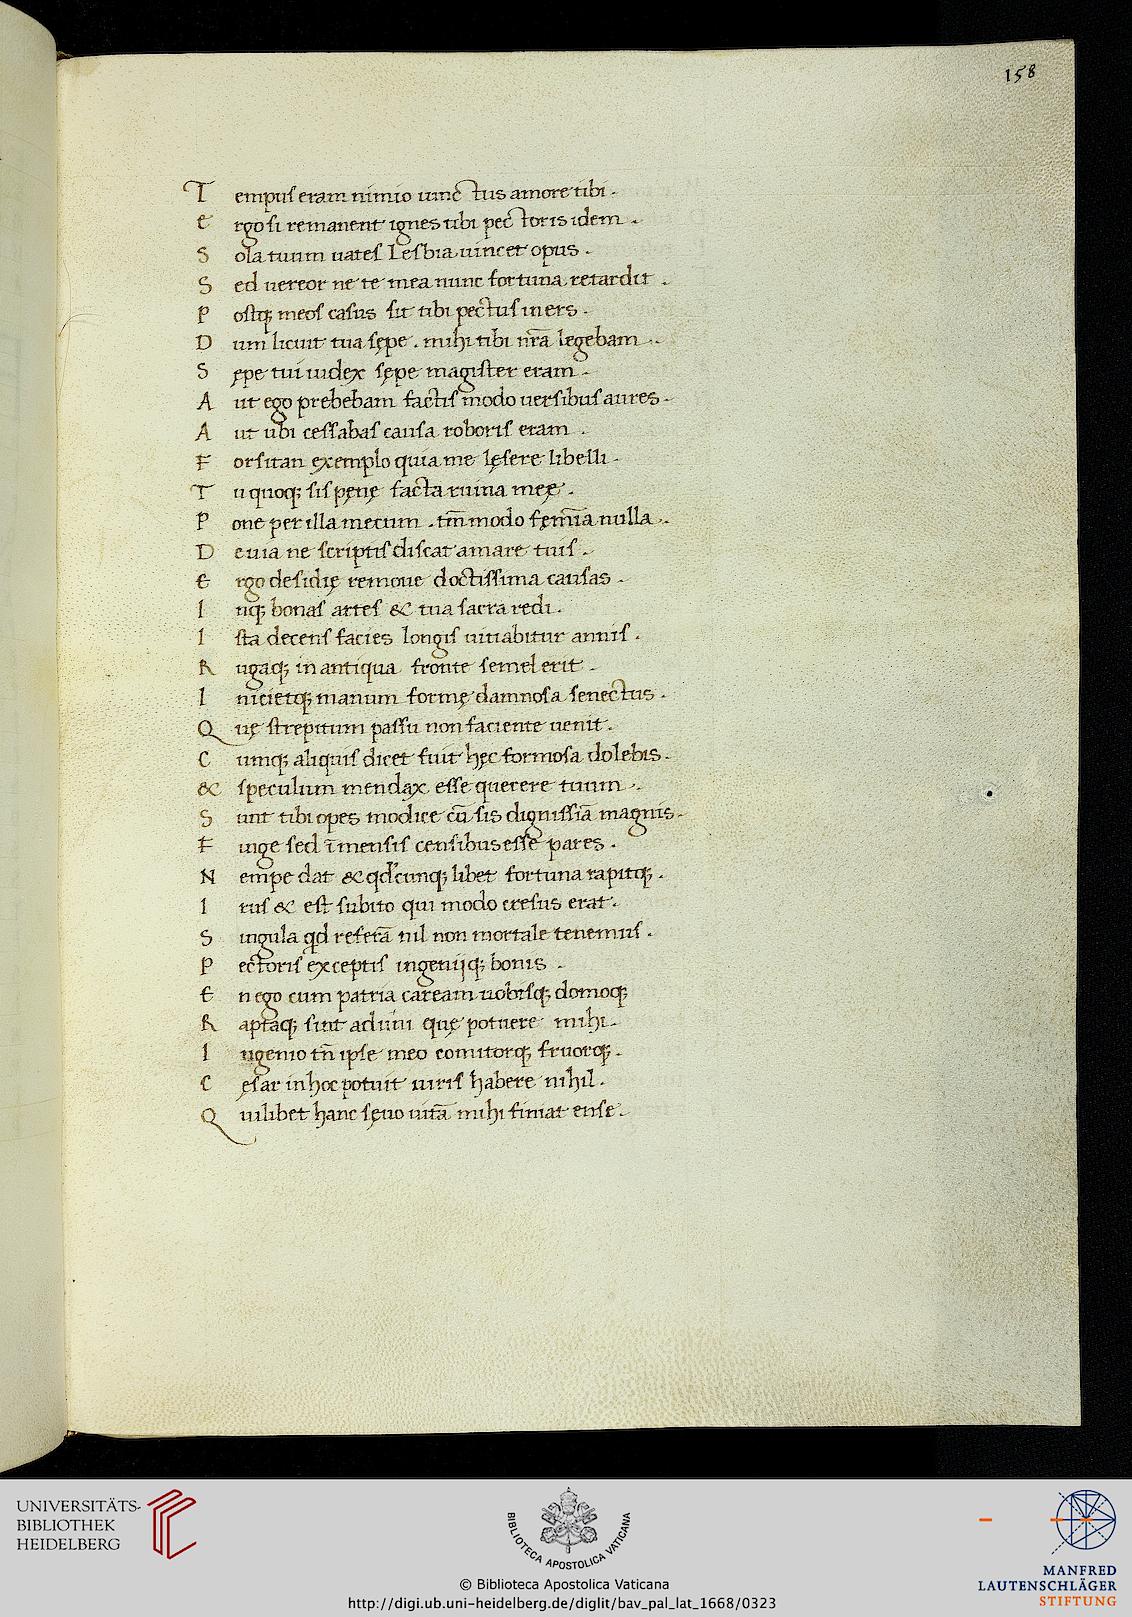 158
T empus eram nimio uinctus amore tibi .
E rgo si remanent ignes tibi pectoris idem .
S ola tuum uates Lesbia uincet opus .
S ed uereor ne te mea nunc fortuna retardit .
P ostq; meos casus sit tibi pectus iners .
D um licuit tua sępe . mihi tibi nr̄a legebam .
S ępe tui iudex sępe magister eram .
A ut ego prebebam factis modo uersibus aures .
A ut ubi cessabas causa roboris eram .
F orsitan exemplo quia me lęsere libelli .
T u quoq; sis pęnę facta ruina meę .
P one per illa metum . tm̄ modo fęmīa nulla .
D euia ne scriptis discat amare tuis .
E rgo desidię remoue doctissima causas .
I nq; bonas artes & tua sacra redi .
I sta decens facies longis uitiabitur annis .
R ugaq; in antiqua fronte semel erit .
I niciet q; manum formę damnosa senectus .
Q uę strepitum passu non faciente uenit .
C umq; aliquis dicet fuit hęc formosa dolebis .
& speculum mendax esse querere tuum .
S unt tibi opes modice cū sis dignissīa magnis .
F inge sed īmensis censibus esse pares .
N empe dat & qd'cunq; libet fortuna rapitq; .
I rus & est subito qui modo cresus erat .
S ingula qd referā nil non mortale tenemus .
P ectoris exceptis ingenijq; bonis .
E n ego cum patria caream uobisq; domoq;
R aptaq; sint adimi quę potuere mihi .
I ngenio tn̄ ipse meo comitorq; fruorq; .
C ęsar in hoc potuit iuris habere nihil .
Q uilibet hanc sęuo uitā mihi finiat ense .
UNIVERSITÄTS-
BIBLIOTHEK
HEIDELBERG
BIBLIOTECA APOSTOLICA VATICANA
MANFRED
LAUTENSCHLÄGER
STIFTUNG
© Biblioteca Apostolica Vaticana
http://digi.ub.uni-heidelberg.de/diglit/bav_pal_lat_1668/0323